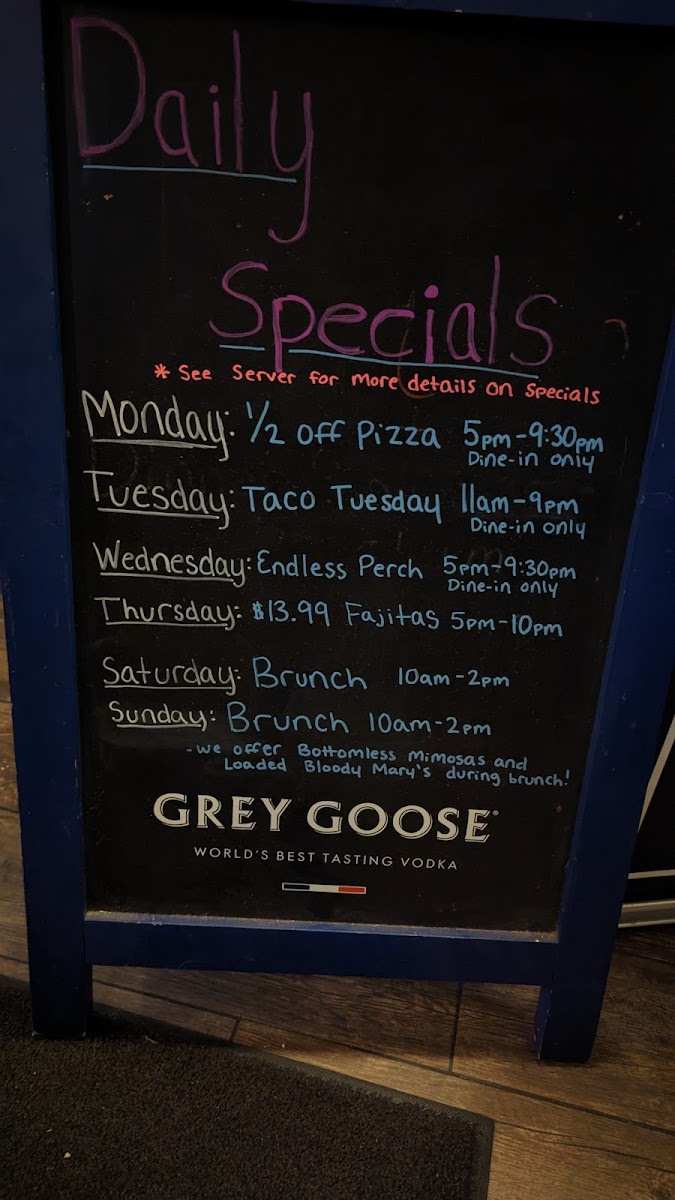 Daily
Specials
* See Server for more details on Specials
Monday: 1/2 off Pizza 5pm-9:30pm
Dine-in only
Tuesday: Taco Tuesday 11am-9pm
Dine-in only
Wednesday: Endless Perch 5pm-9:30pm
Dine-in only
Thursday: $13.99 Fajitas 5pm-10pm
Saturday: Brunch 10am-2pm
Sunday: Brunch 10am-2pm
- we offer Bottomless mimosas and
Loaded Bloody Mary's during brunch!
GREY GOOSE®
WORLD'S BEST TASTING VODKA